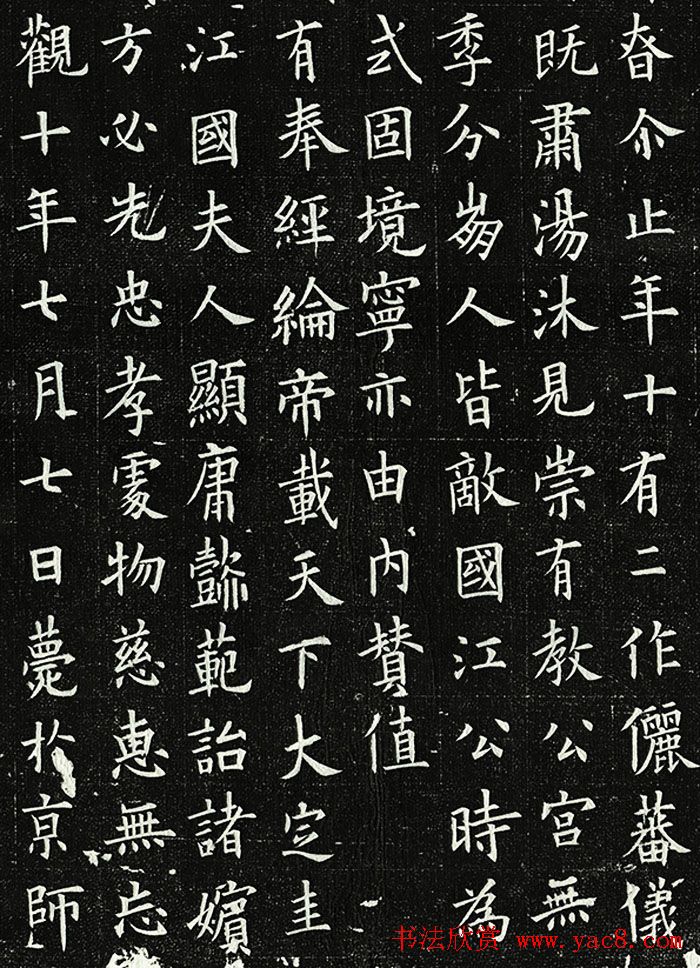 昚尒止年十有二作儷蕃儀
既肅湯沐見崇有教公宮無
季分崩人皆敵國江公時為
式固境寧亦由内賛值
有奉經綸帝載天下大定圭
江國夫人顯庸懿範詒諸嬪
方必先忠孝處物慈惠無忘
觀十年七月七日薨於京師
书法欣赏 www.yac8.com